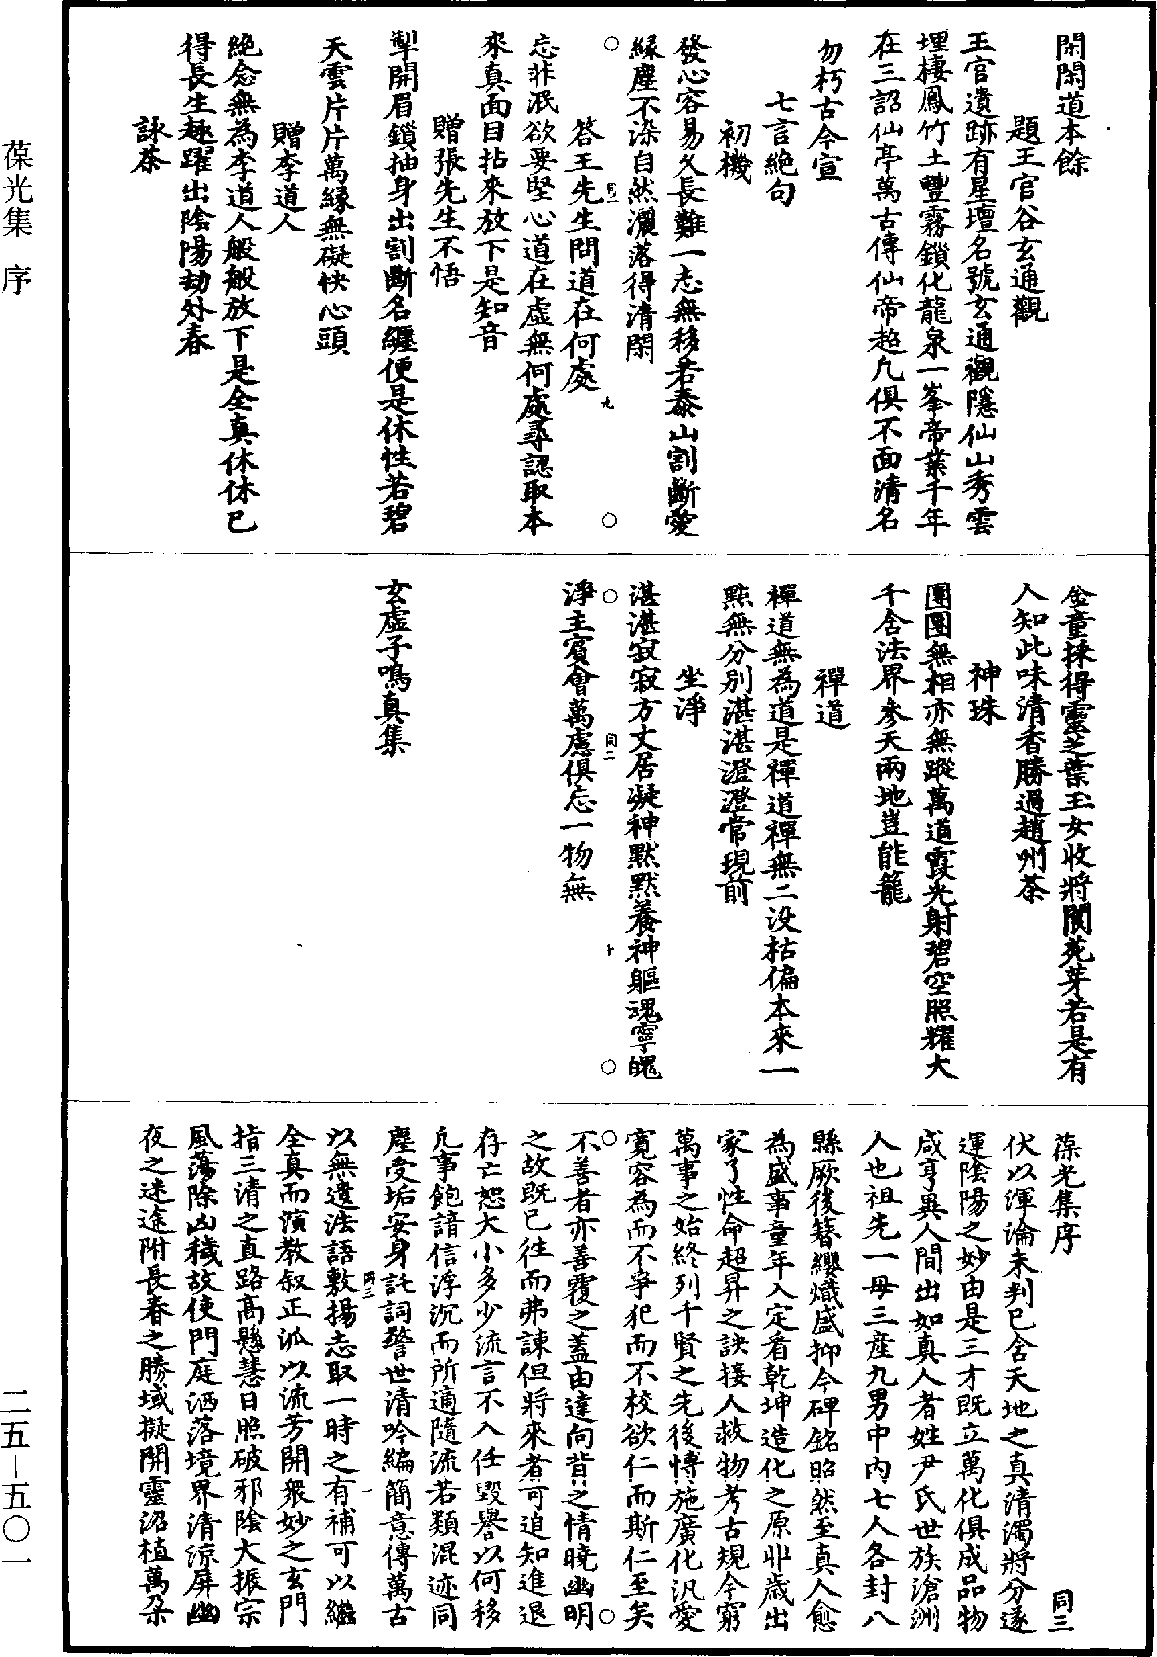 閑閑道本餘
題王官谷玄通觀
王官遺跡有星壇名號玄通觀隱仙山秀雲
埋棲鳳竹土豐霧鎖化龍泉一峯帝業千年
在三詔仙亭萬古傳仙帝超凡俱不面清名
勿朽古今宣
七言絕句
初機
發心容易久長難一志無移若泰山割斷愛
緣塵不染自然灑落得清閑
答王先生問道在何處
忘非泯欲要堅心道在虛無何處尋認取本
來真面目拈來放下是知音
贈張先生不悟
掣開眉鎖抽身出割斷名韁便是休性若碧
天雲片片萬緣無礙快心頭
贈李道人
絕念無為李道人般般放下是全真休休已
得長生趣躍出陰陽劫外春
詠茶
金童採得靈芝葉玉女收將閬苑芽若是有
人知此味清香勝過趙州茶
神珠
團團無相亦無蹤萬道霞光射碧空照耀大
千含法界參天兩地豈能籠
禪道
禪道無為道是禪道禪無二没枯偏本來一
點無分別湛湛澄澄常現前
坐淨
湛湛寂寂方丈居凝神默默養神軀魂寧魄
淨主賓會萬慮俱忘一物無
玄虛子鳴真集
葆光集序
同三
伏以渾淪未判已含天地之真清濁將分遂
運陰陽之妙由是三才既立萬化俱成品物
咸亨異人間出如真人者姓尹氏世族滄洲
人也祖先一母三產九男中內七人各封八
縣厥後簪纓熾盛抑今碑銘昭然至真人愈
為盛事童年入定看乾坤造化之原丱歲出
家了性命超昇之訣接人救物考古規今窮
萬事之始終列千賢之先後博施廣化汎愛
寬容為而不爭犯而不校欲仁而斯仁至矣
不善者亦善覆之蓋由達向背之情曉幽明
之故既已往而弗諫但將來者可追知進退
存亡恕大小多少流言不入任毀譽以何移
凡事飽諳信浮沉而所適隨流若類混迹同
塵受垢安身託詞警世清吟編簡意傳萬古
以無遺法語敷揚志取一時之有補可以繼
全真而演教叙正派以流芳開眾妙之玄門
指三清之直路高懸慧日照破邪陰大振宗
風蕩除凶穢故使門庭洒落境界清涼屏幽
夜之迷途附長春之勝域擬開靈沼植萬朵
葆光集 序
二五－五〇一